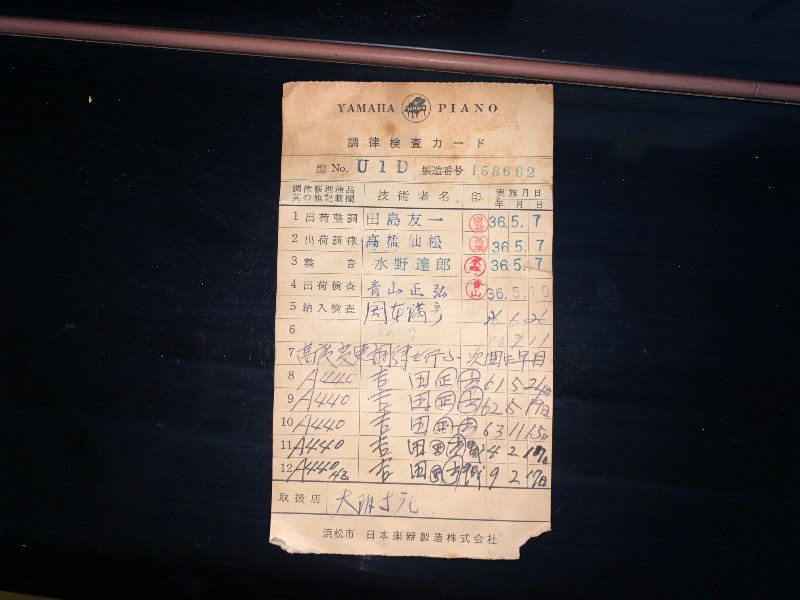 YAMAHA PIANO
調律検査カード
型 No. U1D 製造番号 158662
調律修理検品其の他記載欄 技術者名 印 実施月日 年 月 日
1 出荷整調 田島友一 田島 36.5.7
2 出荷調律 高橋仙松 高橋 36.5.7
3 整音 水野達郎 水野 36.5.7
4 出荷検査 青山正弘 青山 36.5.10
5 納入検査 岡本 36 6 26
6 9 11
7 調律を行う 次回に早目
8 A440 吉田 61 5 24日
9 A440 吉田 62 5 19日
10 A440 吉田 63 11 15日
11 A440 吉田 4 2 17日
12 A440 吉田 9 2 17日
取扱店 大阪支店
浜松市 日本楽器製造株式会社